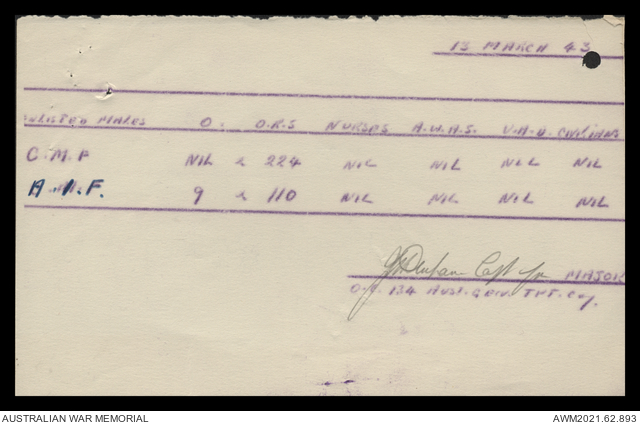 13 MARCH 43
ENLISTED MALES O. O.R.S NURSES A.W.A.S. V.A.D. CIVILIANS
C.M.F NIL & 224 NIL NIL NIL NIL
A.I.F. 9 & 110 NIL NIL NIL NIL
Capt for MAJOR
O.C. 134 AUST. GEN. TPT. COY.
AUSTRALIAN WAR MEMORIAL AWM2021.62.893